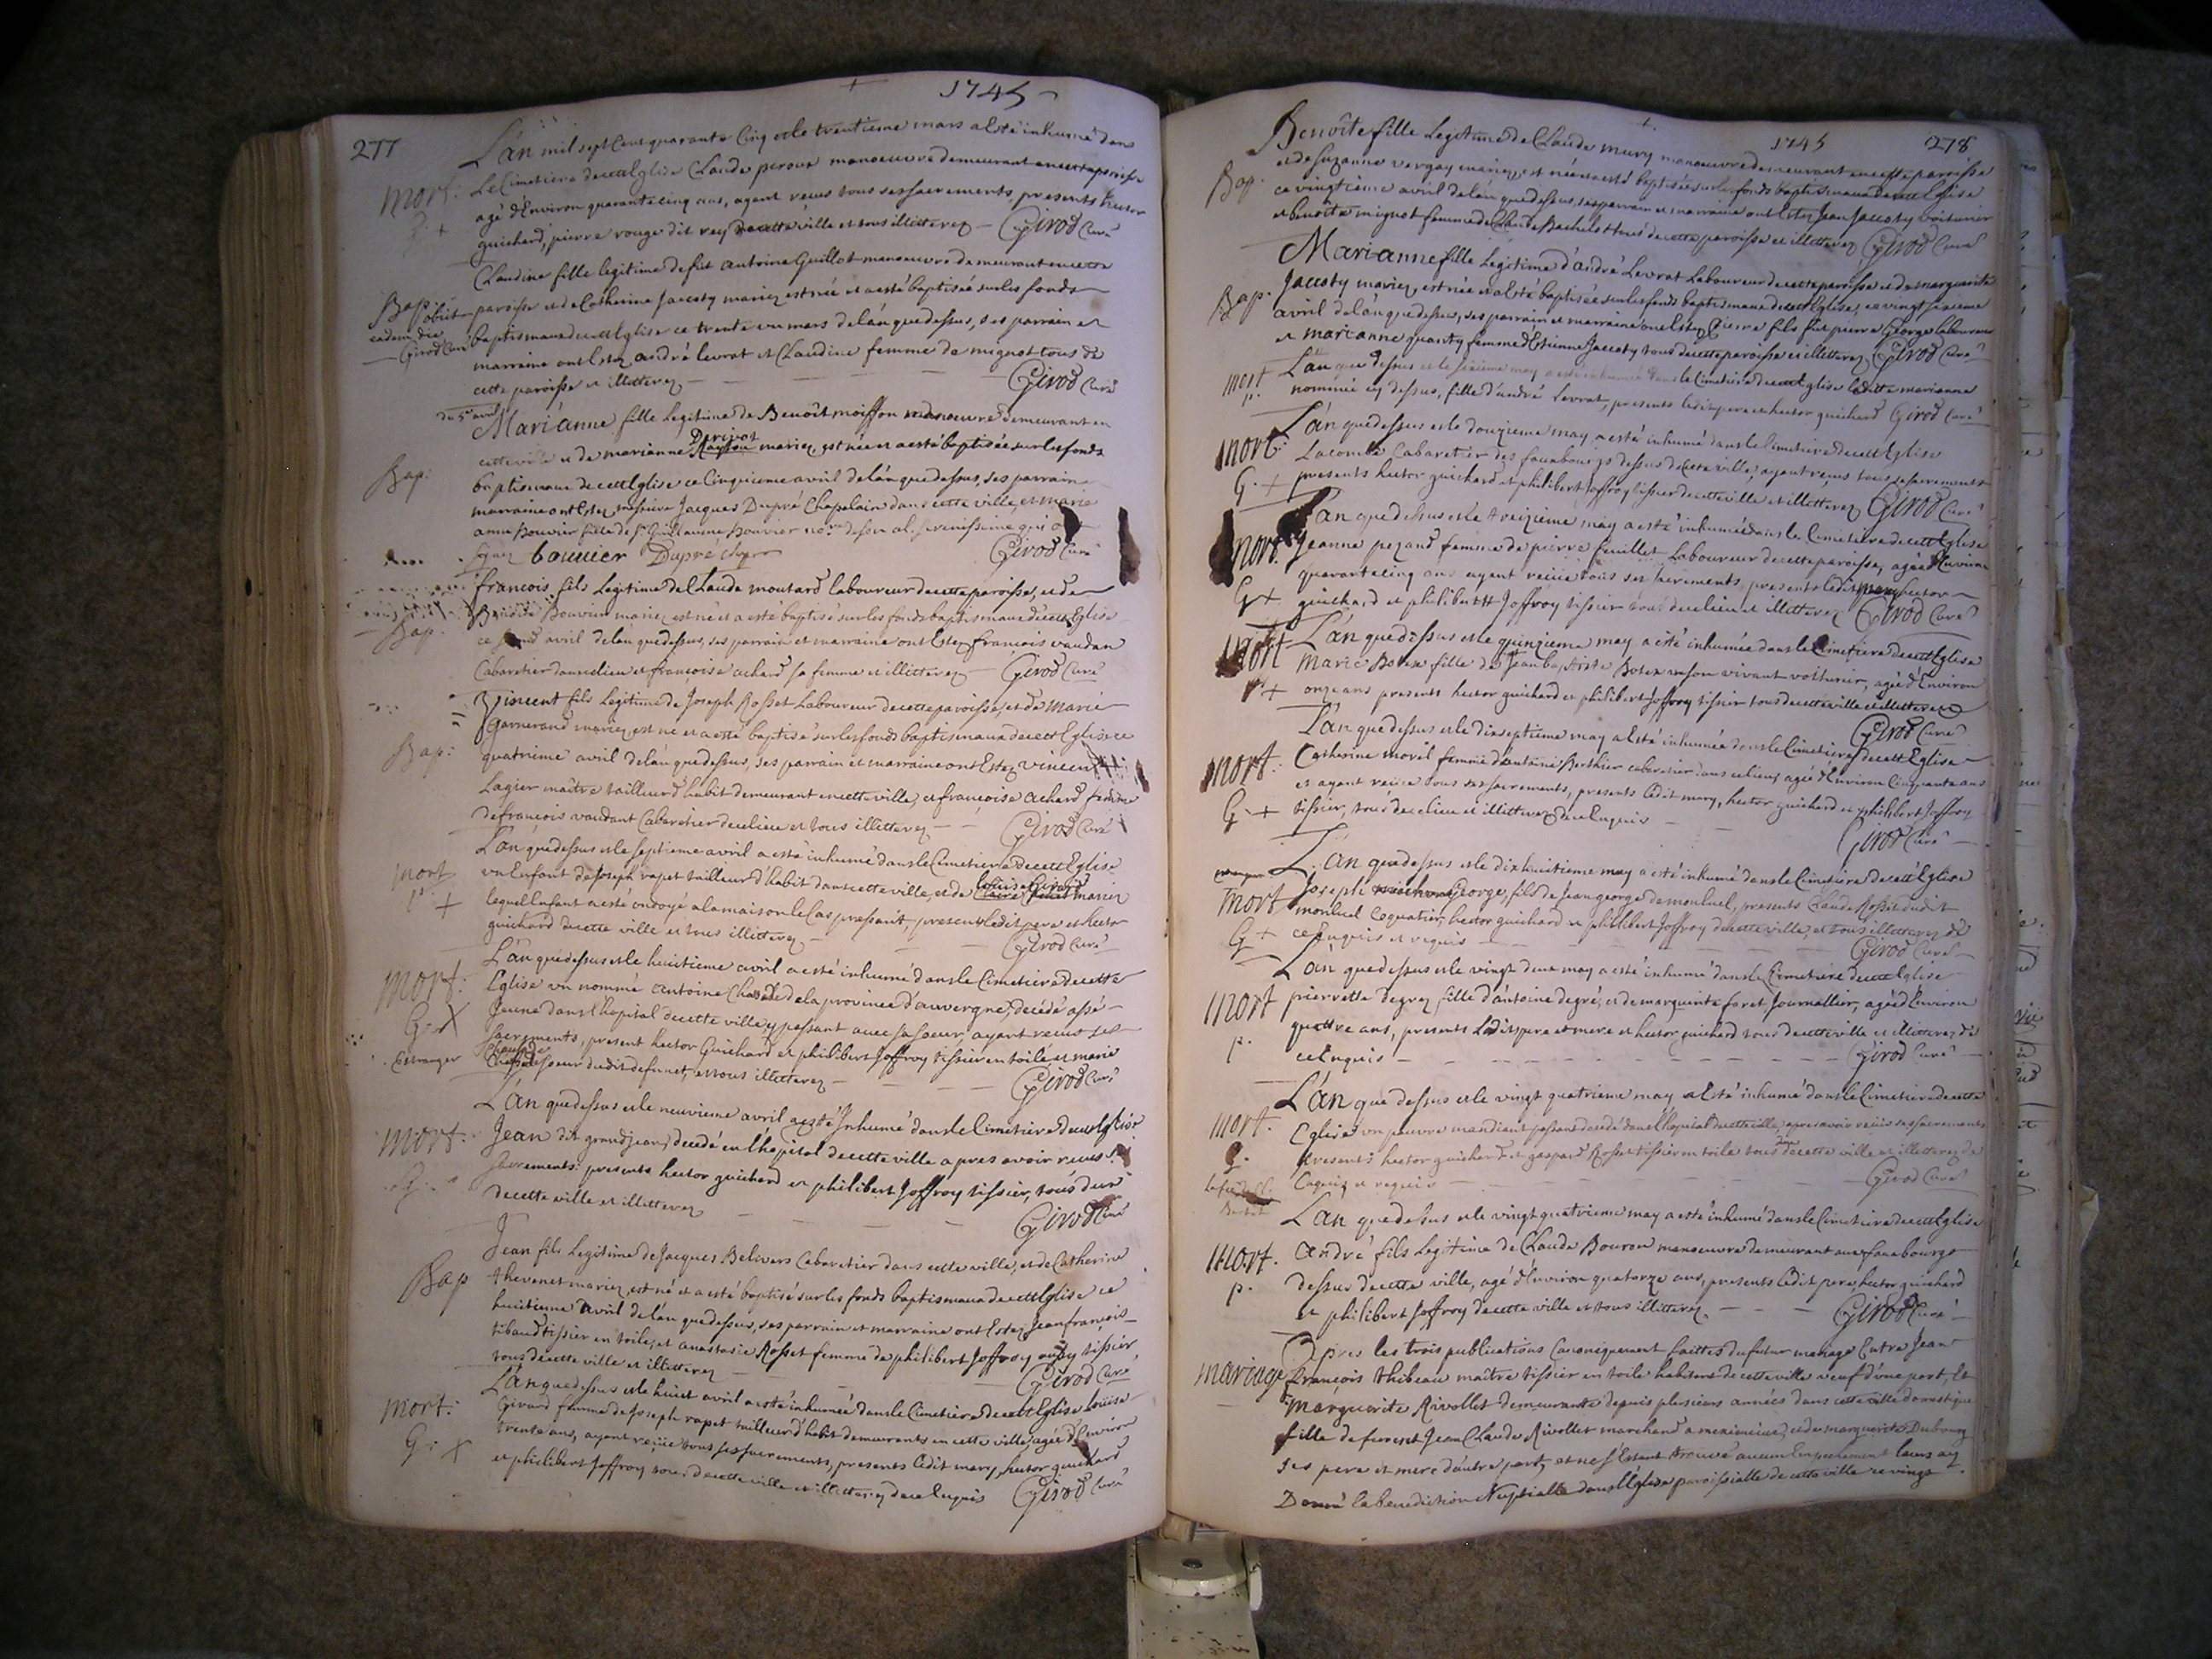 1745
277
L'an mil sept Cent quarante Cinq et le trentieme mars a Esté inhumé dans
mort: Le Cimetiere de cette Eglise Claude peroux manoeuvre demeurant en cette paroisse
agé d'Environ quarante cinq ans, ayant receus tous ses sacrements, presents hector
guichard, pierre rouge dit rey de cette ville et tous illitterez — Girod Curé
Claudine fille legitime de fût antoine Guillot manoeuvre demeurant en cette
Bap: obiit eadem die Girod Curé
paroisse et de Catherine Jacosty mariez est née et a esté baptisée sur les fonds
baptismaux de cette Eglise ce trente un mars de l'an que dessus, ses parrain et
marraine ont Estez andré levrat et Claudine femme de mignot tous de
cette paroisse et illitterez — Girod Curé
du 5e avril
Marianne fille legitime de Benoît moisson manoeuvre demeurant en
cette ville et de marianne Perivot mariez, est née et a esté baptisée sur les fonds
Bap:
baptismaux de cette Eglise ce Cinquieme avril de l'an que dessus, ses parrain
marraine ont Estez messire Jacques Dupré Chapelain dans cette ville, et marie
anne bouvier fille de Sr. Guillaume bouvier no.re de son al. serenissime qui ont
signez bouuier Dupré Girod Curé
françois fils Legitime de Claude moutard laboureur de cette paroisse, et de
Benoite Bouvier mariez est né et a esté baptisé sur les fonds baptismaux de cette Eglise
Bap.
ce avril de l'an que dessus, ses parrain et marraine ont Estez françois vaudan
Cabaretier dans ce lieu et françoise achard sa femme et illitterez — Girod Curé
Vincent fils Legitime de Joseph Rosset Laboureur de cette paroisse, et de Marie
Garnerand mariez est né et a esté baptisé sur les fonds baptismaux de cette Eglise ce
Bap:
quatrieme avril de l'an que dessus, ses parrain et marraine ont Estez vincent
Lagier maître tailleur d'habit demeurant en cette ville, et françoise achard femme
de françois vaudant Cabaretier de ce lieu et tous illitterez — Girod Curé
L'an que dessus et le septieme avril a esté inhumé dans le Cimetiere de cette Eglise
mort
un Enfant de Joseph rapet tailleur d'habit dans cette ville, et de Louise Girard mariez
lequel Enfant a esté ondoyé a la maison le Cas pressant, presents ledit pere et hector
guichard de cette ville et tous illitterez — Girod Curé
L'an que dessus et le huitieme avril a esté inhumé dans le Cimetiere de cette
mort:
Eglise un nommé antoine de la province d'auvergne, decedé assé
Jeune dans l'hopital de cette ville y passant avec sa soeur, ayant receus ses
sacrements, present hector Guichard et philibert Joffroy tissier en toile et marie
Estranger
soeur dudit defunct, et tous illitterez — Girod Curé
L'an que dessus et le neuvieme avril a esté Inhumé dans le Cimetiere de cette Eglise
mort:
Jean dit grandjean, decedé en l'hopital de cette ville apres avoir receus ses
sacrements: presents hector guichard et philibert Joffroy tissier, tous deux
de cette ville et illitterez — Girod Curé
Jean fils Legitime de Jacques Belivers Cabaretier dans cette ville, et de Catherine
Bap
thevenet mariez, est né et a esté baptisé sur les fonds baptismaux de cette Eglise ce
huitieme avril de l'an que dessus, ses parrain et marraine ont Estez Jean françois
tibaud tissier en toile, et anastasie Rosset femme de philibert Joffroy aussy tissier
tous de cette ville et illitterez — Girod Curé
L'an que dessus et le huict avril a esté inhumée dans le Cimetiere de cette Eglise Louise
mort:
Girard femme de Joseph rapet tailleur d'habit demeurants en cette ville, agée d'Environ
G: +
trente ans, ayant receüe tous ses sacrements, presents ledit mary, hector guichard
et philibert Joffroy tous de cette ville et illitterez de ce Enquis Girod Curé
1745
278
Benoîte fille Legitime de Claude mury manoeuvre demeurant en cette paroisse
Bap.
et de Suzanne vergay mariez, est née et a esté baptisée sur les fonds baptismaux de cette Eglise
ce vingtieme avril de l'an que dessus, ses parrain et marraine ont Estez Jean Jacosty voiturier
et benoîte mignot femme de Claude Bachelet tous de cette paroisse et illitterez Girod Curé
Marianne fille Legitime d'andré Levrat Laboureur de cette paroisse et de marguerite
Bap.
Jacosty mariez, est née et a Esté baptisée sur les fonds baptismaux de cette Eglise, ce vingt sixieme
avril de l'an que dessus, ses parrain et marraine ont Estez pierre fils fut pierre George laboureur
et marianne femme d'Etienne Jacosty tous de cette paroisse et illitterez Girod Curé
L'an que dessus et le sixieme may a esté inhumée dans le Cimetiere de cette Eglise ladite marianne
mort p.
nommée cy dessus, fille d'andré Levrat, presents ledit pere et hector guichard Girod Curé
L'an que dessus et le douzieme may a esté inhumé dans le Cimetiere de cette Eglise
mort:
Lacombe Cabaretier des fauxbourgs dessus de cette ville, ayant receus tous ses sacrements
G. +
presents hector guichard et philibert Joffroy tissier de cette ville et illitterez Girod Curé
L'an que dessus et le treizieme may a esté inhumée dans le Cimetiere de cette Eglise
mort.
Jeanne pezant femme de pierre feuillet Laboureur de cette paroisse, agée d'Environ
quarante cinq ans ayant receüe tous ses sacrements, presents ledit mary, hector
G +
guichard et philibert Joffroy tissier tous de ce lieu et illitterez Girod Curé
L'an que dessus et le quinzieme may a esté inhumée dans le Cimetiere de cette Eglise
mort
Marie Botex fille de Jean baptiste Botex en son vivant voiturier, agée d'Environ
p. +
onze ans presents hector guichard et philibert Joffroy tissier tous de cette ville et illitterez
Girod Curé
L'an que dessus et le dixseptieme may a Esté inhumée dans le Cimetiere de cette Eglise
mort:
Catherine morel femme d'antoine Berthier cabaretier dans ce lieu, agée d'Environ Cinquante ans
et ayant receüe tous ses sacrements, presents ledit mary, hector guichard et philibert Joffroy
G. +
tissier, tous de ce lieu et illitterez de ce Enquis —
Girod Curé
L'an que dessus et le dixhuitieme may a esté inhumé dans le Cimetiere de cette Eglise
mort
Joseph George, fils de Jean george de monluel, presents Claude Rosset dudit
G +
monluel Coquatier, hector guichard et philibert Joffroy de cette ville, et tous illitterez de
ce Enquis et requis — Girod Curé
L'an que dessus et le vingt deux may a esté inhumé dans le Cimetiere de cette Eglise
mort
pierrette degrez, fille d'antoine degré, et de marguerite foret Journallier, agée d'Environ
quattre ans, presents Ledit pere et mere et hector guichard tous de cette ville et illitterez de
p.
ce Enquis — Girod Curé
L'an que dessus et le vingt quatrieme may a Esté inhumé dans le Cimetiere de cette
mort.
Eglise un pauvre mandiant passant decedé dans l'hopital de cette ville, apres avoir receüs ses sacrements
presents hector guichard et gaspard Rosset tissier en toile tous deux de cette ville et illitterez de
Enquis et requis — Girod Curé
L'an que dessus et le vingt quatrieme may a esté inhumé dans le Cimetiere de cette Eglise
mort.
andré fils Legitime de Claude Bouron manoeuvre demeurant aux fauxbourgs
p.
dessus de cette ville, agé d'Environ quatorze ans, presents ledit pere, hector guichard
et philibert Joffroy de cette ville et tous illitterez. — Girod Curé
Apres les trois publications Canoniquement faittes du futur mariage Entre Jean
mariage
françois thibeau maître tissier en toile habitant de cette ville veuf d'une part, Et
Marguerite Rivollet demeurante depuis plusieurs années dans cette ville domestique
fille de Jean Claude Rivollet marchand a meximieux, et de marguerite Dubourg
ses pere et mere d'autre part, et ne s'Estant trouvé aucun Empechement leurs ay
Donné la benediction Nuptialle dans l'Eglise paroissialle de cette ville ce vingt